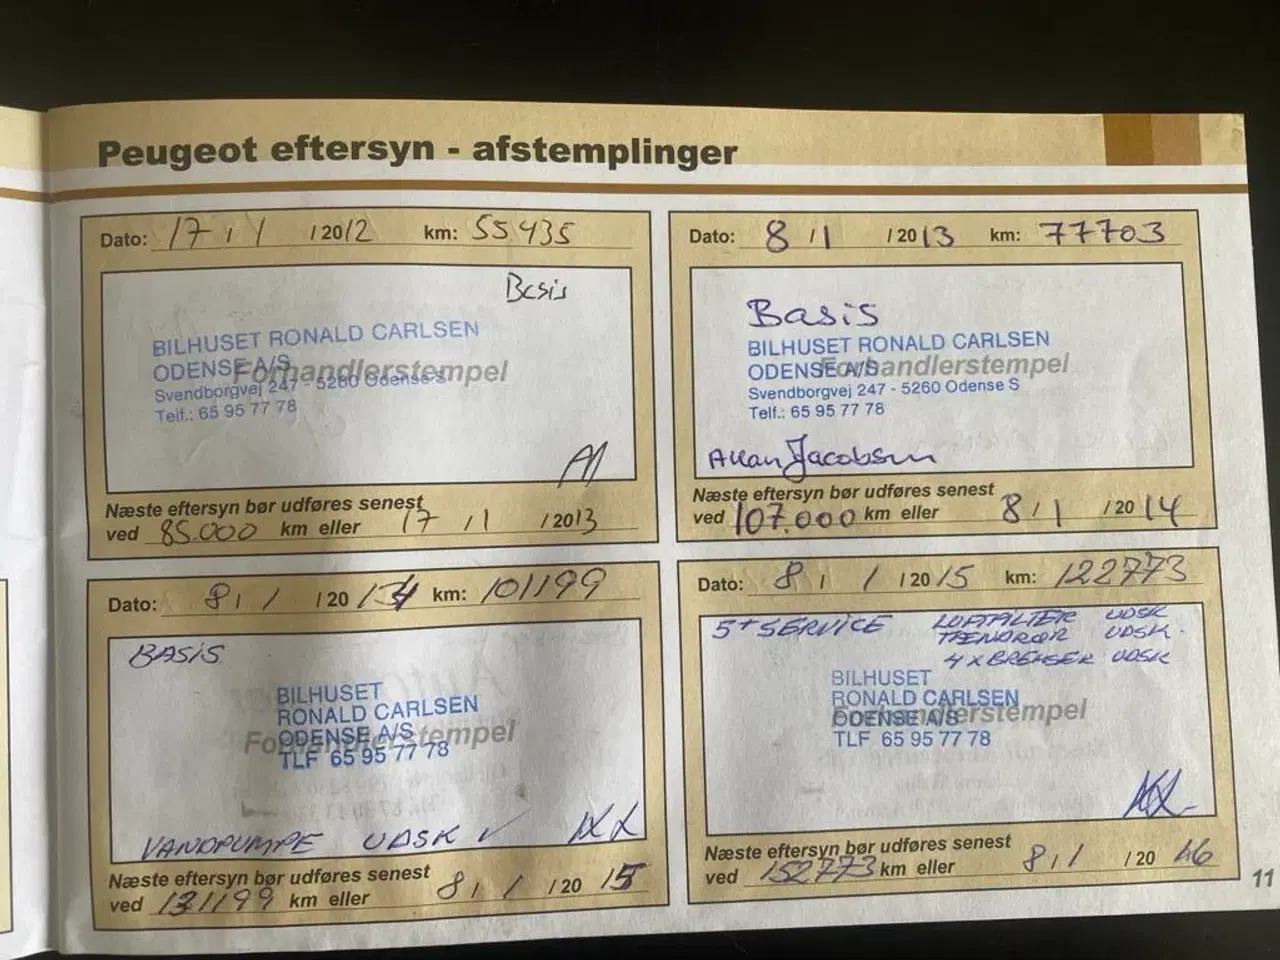 Peugeot eftersyn - afstemplinger
Dato: 17 / 1 / 2012 km: 55435
Basis
BILHUSET RONALD CARLSEN
ODENSE A/S
Forhandlerstempel
Svendborgvej 247 - 5260 Odense S
Telf.: 65 95 77 78
Næste eftersyn bør udføres senest
ved 85.000 km eller 17 / 1 / 2013
Dato: 8 / 1 / 2013 km: 77703
Basis
BILHUSET RONALD CARLSEN
ODENSE A/S
Forhandlerstempel
Svendborgvej 247 - 5260 Odense S
Telf.: 65 95 77 78
Allan Jacobsen
Næste eftersyn bør udføres senest
ved 107.000 km eller 8 / 1 / 2014
Dato: 8 / 1 / 2014 km: 101199
BASIS
BILHUSET
RONALD CARLSEN
ODENSE A/S
Forhandlerstempel
TLF 65 95 77 78
VANDPUMPE UDSK ✓
Næste eftersyn bør udføres senest
ved 131199 km eller 8 / 1 / 2015
Dato: 8 / 1 / 2015 km: 122773
5+ SERVICE LUFTFILTER UDSK
TÆNDRØR UDSK.
4 x BREMSER UDSK
BILHUSET
RONALD CARLSEN
ODENSE A/S
Forhandlerstempel
TLF 65 95 77 78
Næste eftersyn bør udføres senest
ved 152773 km eller 8 / 1 / 2016
11